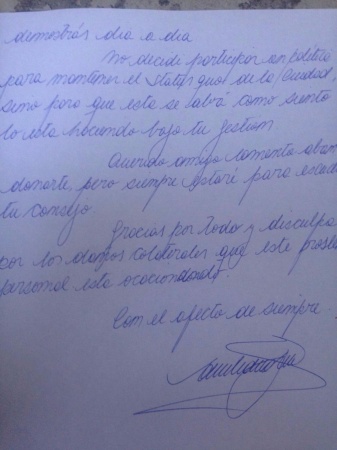 demostrás día a día
No decidí participar en política
para mantener el status quo de la Ciudad,
sino para que esta se abra como siento
lo esta haciendo bajo tu gestion
Querido amigo lamento aban
donarte, pero siempre estaré para
tu consejo
Gracias por todo y disculpa
por los daños colaterales que este
personal esta ocacionando.
Con el afecto de siempre